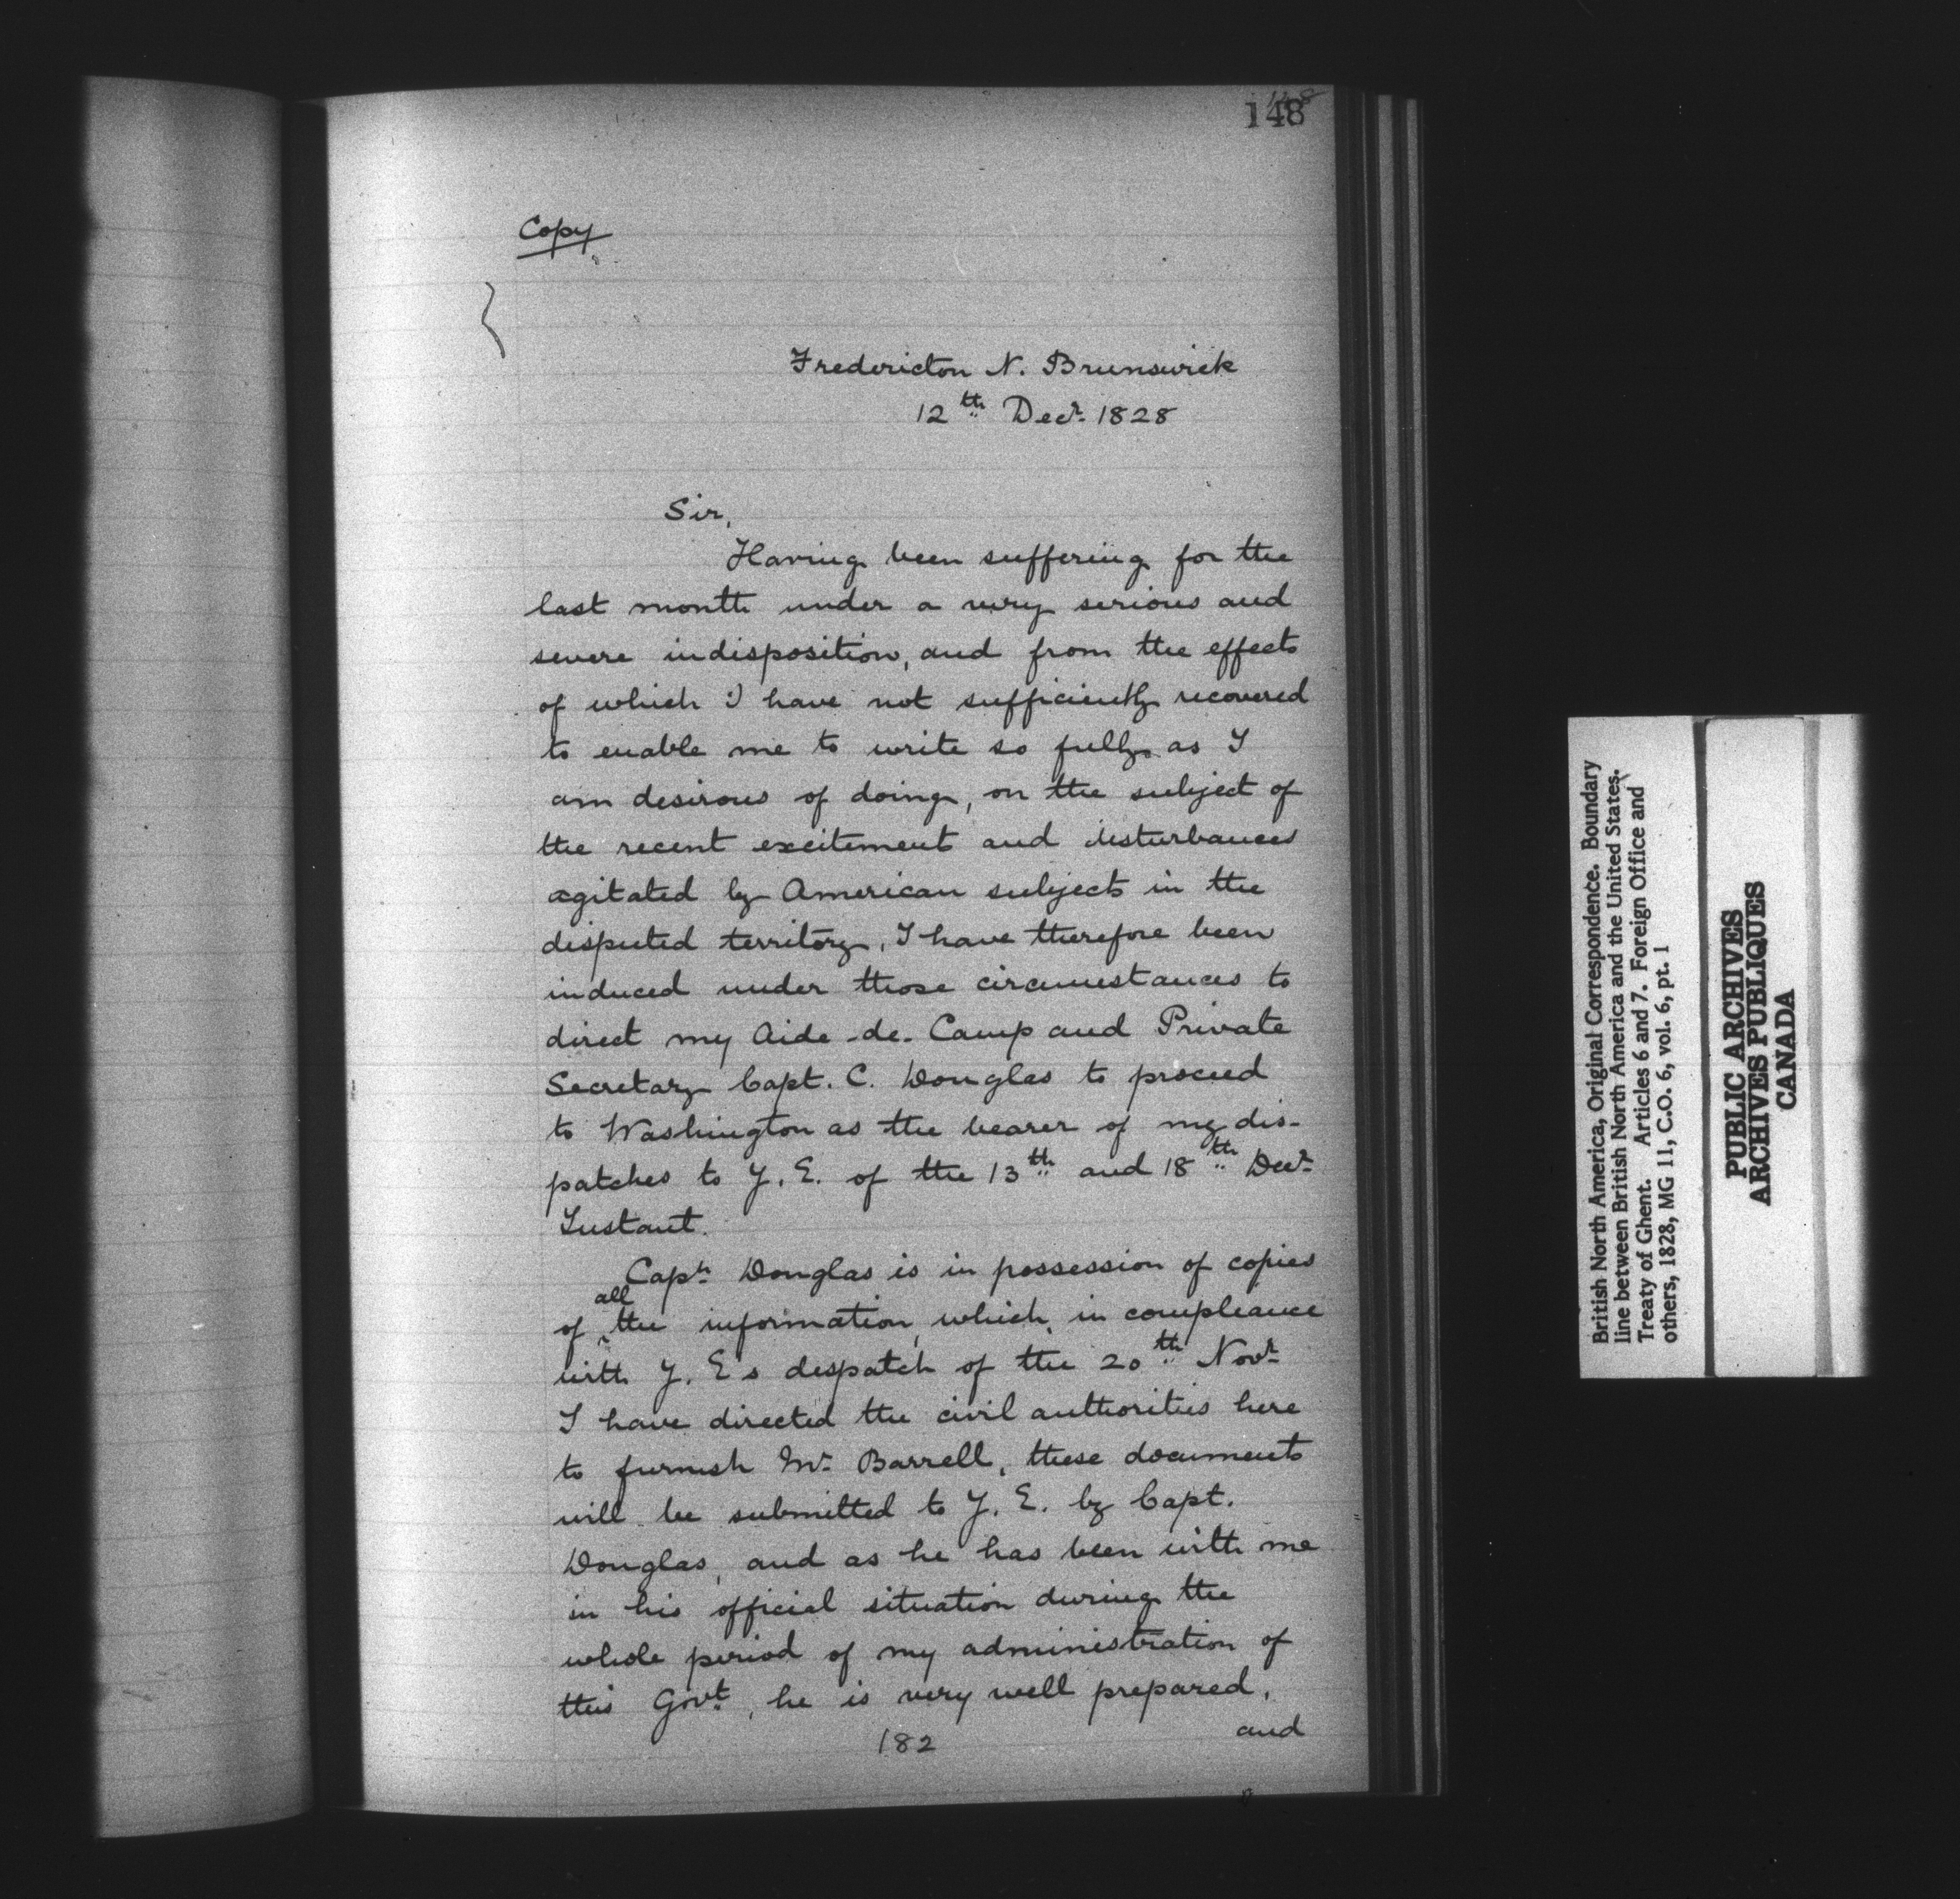 148
Copy
Fredericton N. Brunswick
12th Decr. 1828
Sir,
Having been suffering for the
last month under a very serious and
severe indisposition, and from the effects
of which I have not sufficiently recovered
to enable me to write so fully as I
am desirous of doing, on the subject of
the recent excitement and disturbances
agitated by American subjects in the
disputed territory, I have therefore been
induced under those circumstances to
direct my Aide-de-Camp and Private
Secretary Capt. C. Douglas to proceed
to Washington as the bearer of my dis-
patches to Y. E. of the 13th and 18th Decr.
Instant.
Capt. Douglas is in possession of copies
of all the information, which, in compleance
with Y. E's despatch of the 20th Novr.
I have directed the civil authorities here
to furnish Mr. Barrell, these documents
will be submitted to Y. E. by Capt.
Douglas, and as he has been with me
in his official situation during the
whole period of my administration of
this Govt., he is very well prepared,
and
182
British North America, Original Correspondence. Boundary
line between British North America and the United States.
Treaty of Ghent. Articles 6 and 7. Foreign Office and
others, 1828, MG 11, C.O. 6, vol. 6, pt. 1
PUBLIC ARCHIVES
ARCHIVES PUBLIQUES
CANADA